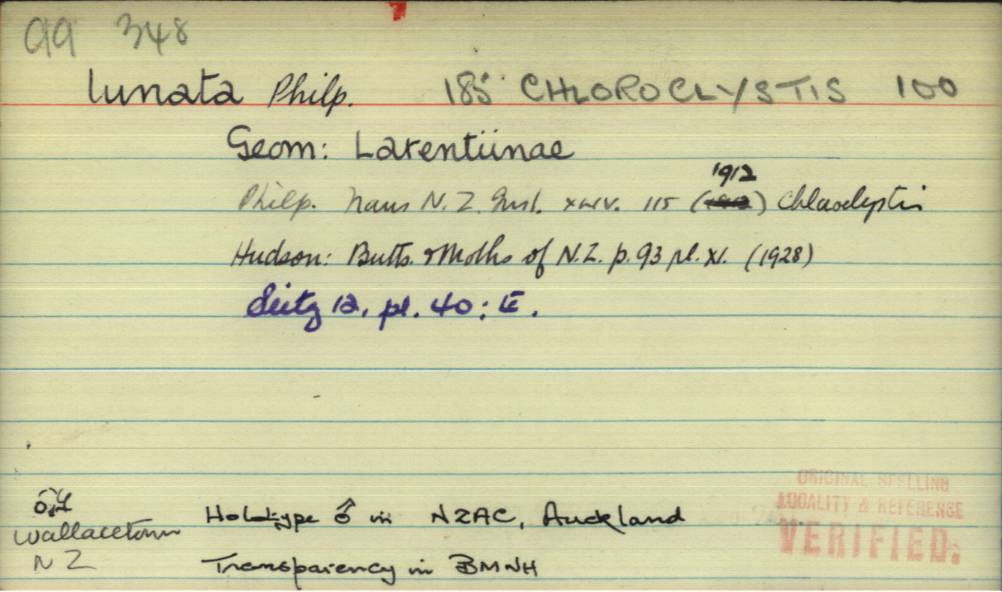 99 348
lunata Philp. 185 CHLOROCLYSTIS 100
Geom: Larentiinae
1912
Philp. Trans N. Z. Inst. xliv. 115 ( ) Chloroclystis
Hudson: Butts. & Moths of N.Z. p. 93 pl. XI. (1928)
Seitz 12, pl. 40: E.
ORIGINAL SPELLING
LOCALITY & REFERENCE
VERIFIED:
Holotype ♂ in NZAC, Auckland
Wallacetown
NZ Transparency in BMNH